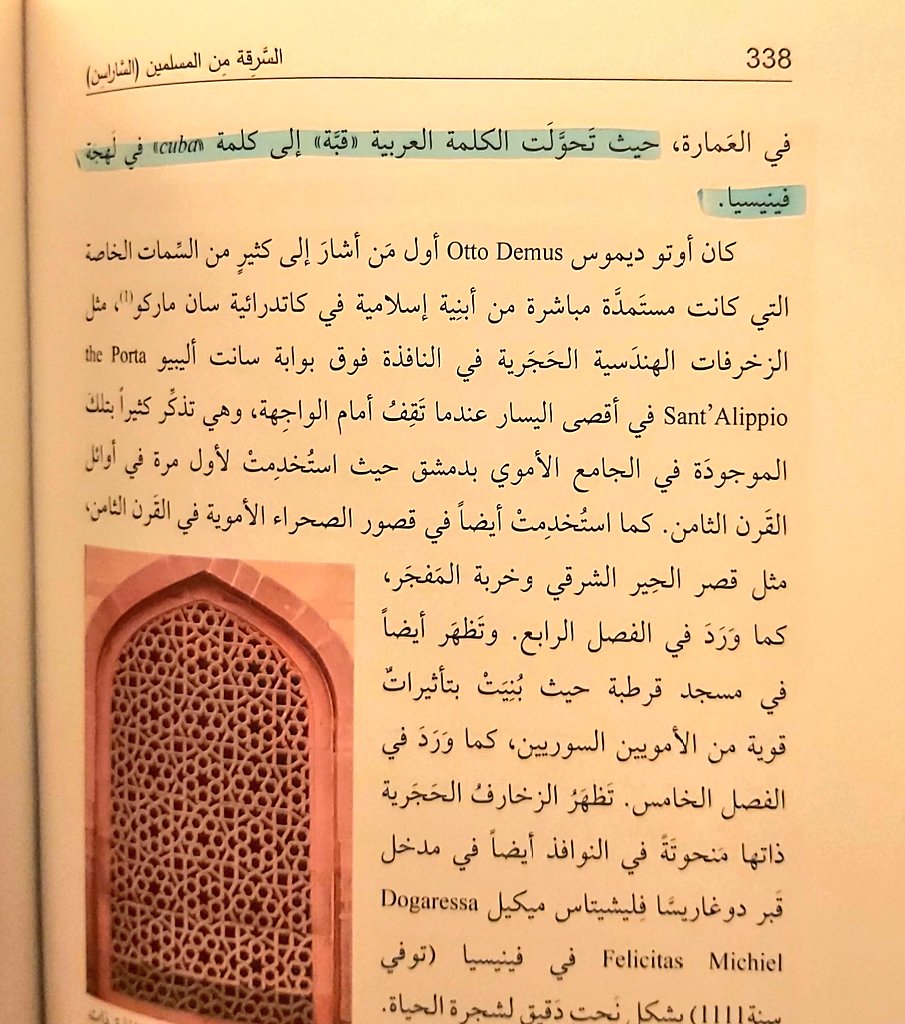 338
السَّرِقة مِن المسلمين (السَّاراسِن)
في العَمارة، حيث تَحوَّلَت الكلمة العربية «قبَّة» إلى كلمة «cuba» في لَهجة
فينيسيا.
كان أوتو ديموس Otto Demus أول مَن أشارَ إلى كثيرٍ من السِّمات الخاصة
التي كانت مستَمدَّة مباشرة من أبنِية إسلامية في كاتدرائية سان ماركو(1)، مثل
الزخرفات الهندَسية الحَجَرية في النافذة فوق بوابة سانت أليبيو the Porta
Sant’Alippio في أقصى اليسار عندما تَقِفُ أمام الواجِهة، وهي تذكِّر كثيراً بتلكَ
الموجودَة في الجامع الأموي بدمشق حيث استُخدِمتْ لأول مرة في أوائل
القَرن الثامن. كما استُخدِمتْ أيضاً في قصور الصحراء الأموية في القَرن الثامن،
مثل قصر الحِير الشرقي وخربة المَفجَر،
كما وَرَدَ في الفصل الرابع. وتَظهَر أيضاً
في مسجد قرطبة حيث بُنِيَتْ بتأثيراتٌ
قوية من الأمويين السوريين، كما وَرَدَ في
الفصل الخامس. تَظهَرُ الزخارفُ الحَجَرية
ذاتها مَنحوتَةً في النوافذ أيضاً في مدخل
قَبر دوغاريسَّا فِليشيتاس ميكيل Dogaressa
Felicitas Michiel في فينيسيا (توفي
سنة 1111) بشكل نَحت دَقيق لشجرة الحياة.